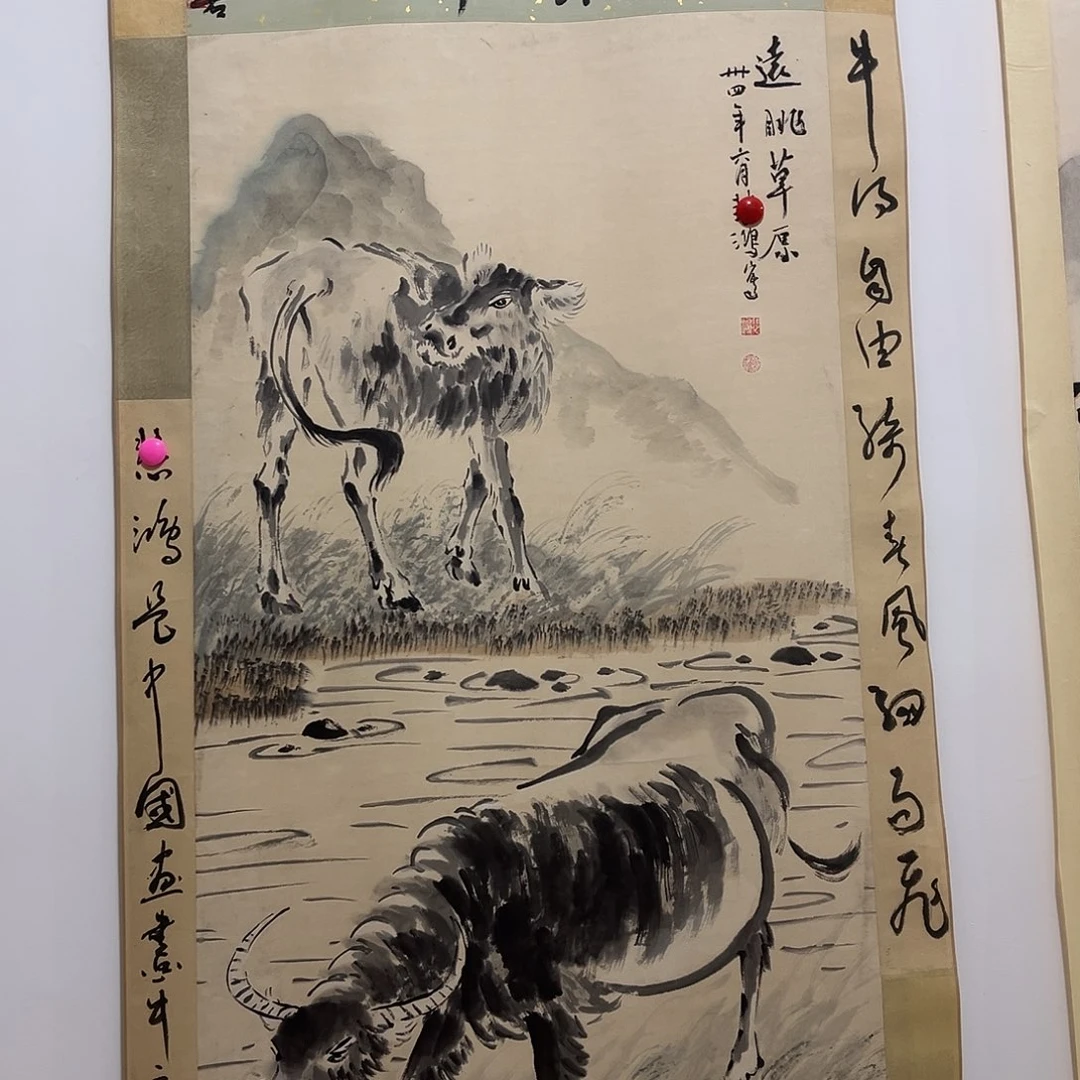 遠眺草原
卅四年六月
鴻寫
牛得自由骑春風细雨飛
鴻是中國画
牛